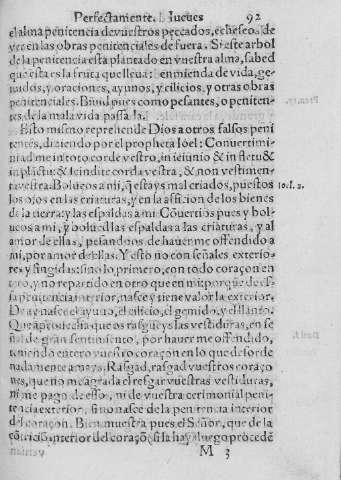 Perfectamente. I. Jueves 92
el alma penitencia de vuestros peccados, echese de
ver en las obras penitenciales de fuera. Si este arbol
de la penitencia esta plantado en vuestra alma, sabed
que esta es la fruta que lleua: enmienda de vida, ge-
midos, y oraciones, ayunos, y cilicios, y otras obras
penitenciales. Biuid pues como pesantes, o peniten-
tes de la mala vida passada.
Esto mismo reprehende Dios a otros falsos peni
tentes, diziendo por el propheta Ioel: Conuertimi-
ni ad me in toto corde vestro, in ieiunio & in fletu &
in plactu: & scindite corda vestra, & non vestimen-
ta vestra. Bolueos a mi, q̃ estays mal criados, puestos
los ojos en las criaturas, y en la afficion de los bienes
de la tierra: y las espaldas a mi. Cõuertios pues y bol-
ueos a mi, y bolued las espaldas a las criaturas, y al
amor de ellas, pesandoos de hauerme offendido a
mi, por amor dellas. Y esto no con señales exterio-
res y fingidas: sino lo primero, con todo coraçon en
tero, y no repartido en otro que en mi: porq̃ de es-
sa penitencia interior, nasce y tiene valor la exterior.
De ay nasce el ayuno, el cilicio, el gemido, y el llanto.
Que aprouecha que os rasgueys las vestiduras, en se
ñal de gran sentimiento, por hauerme offendido,
teniendo entero vuestro coraçon en lo que desorde
nadamente amays. Rasgad, rasgad vuestros coraço
nes, que no me agrada el resgar vuestras vestiduras,
ni me pago de esso, ni de vuestra cerimonial peni-
tencia exterior, si no nasce de la penitencia interior
del coraçon. Bien muestra pues el Señor, que de la
cõtricion interior del coraçõ, si la hay, luego procedẽ
M 3
Io.l.2.